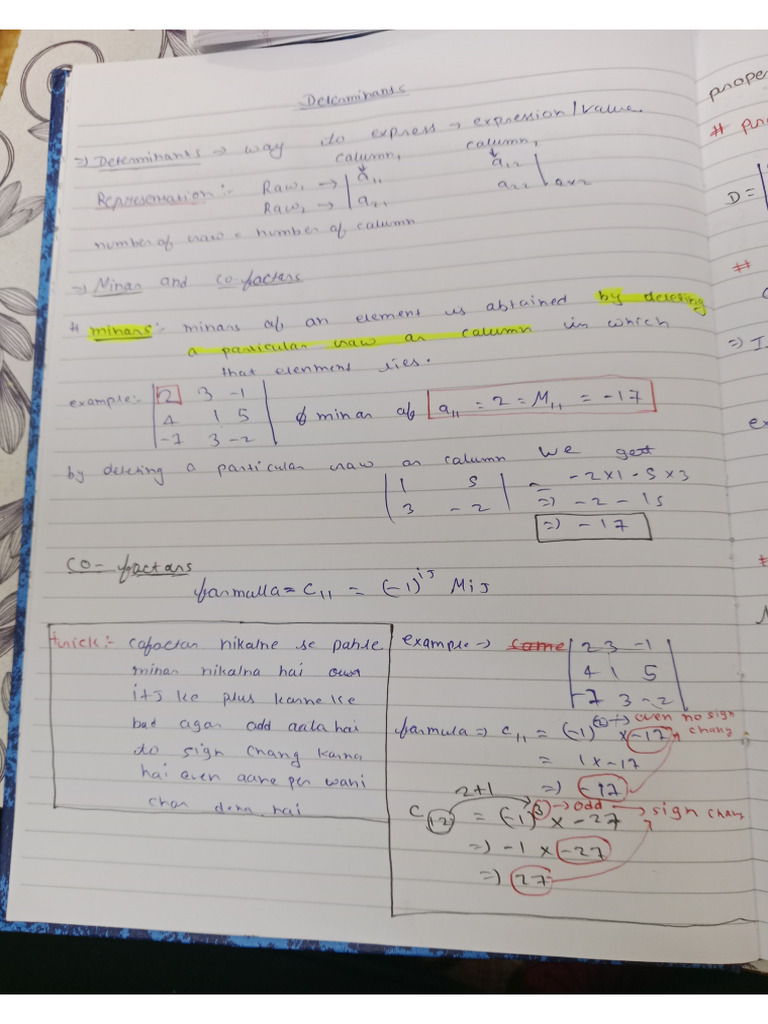 Determinants
=> Determinants → way to express → expression/value.
column, column,
Representation:- Raw₁ → | a₁₁ a₁₂ |
Raw₂ → | a₂₁ a₂₂ | 2x2
number of raw = number of column
→ Minor and co-factors
# minors:- minors of an element is obtained by deleting
a particular raw or column in which
that elenment lies.
example:- | 2 3 -1 |
| 4 1 5 | minor of a₁₁ = 2 = M₁₁ = -17
| -7 3 -2 |
by deleting a particular raw or column we get
| 1 5 | = -2x1 - 5x3
| 3 -2 | => -2 - 15
=> -17
CO-factors
formulla = C₁₁ = (-1)^ij Mij
trick:- cofactor nikalne se pahle
minor nikalna hai
i+j ke plus karne ke
bad agar odd aata hai
to sign chang karna
hai even aane per wahi
chor dena hai
example → | 2 3 -1 |
| 4 1 5 |
| -7 3 -2 |
formula => C₁₁ = (-1)² x -17 → even no sign chang
= 1 x -17
=> -17
2+1
C₁₂ = (-1)³ x -27 → odd → sign chang
=> -1 x -27
=> 27
prope
#
D =
#
=> I
ex